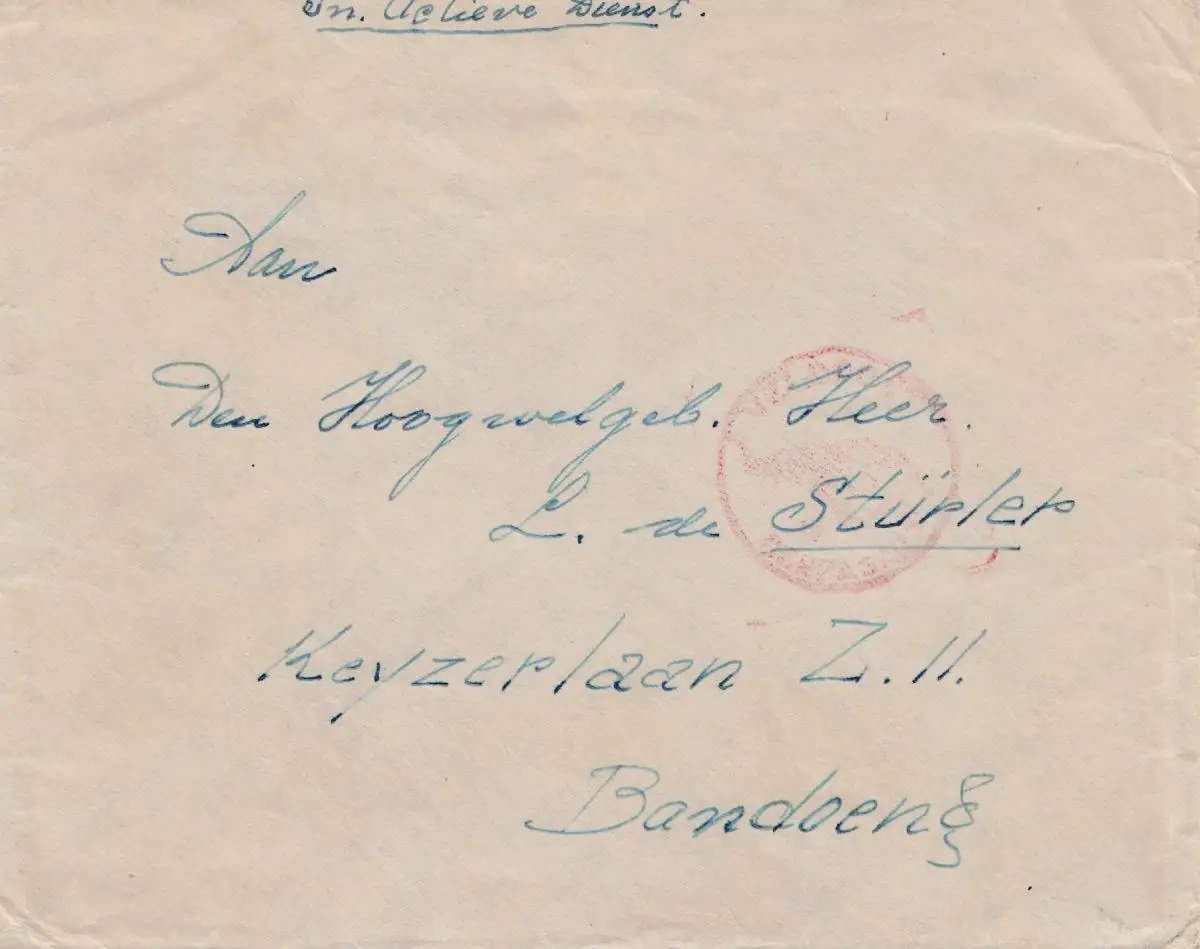 In. Actieve Dienst.
Aan
Den Hoogwelgeb. Heer.
L. de Stürler
Keyzerlaan Z. 11.
Bandoeng